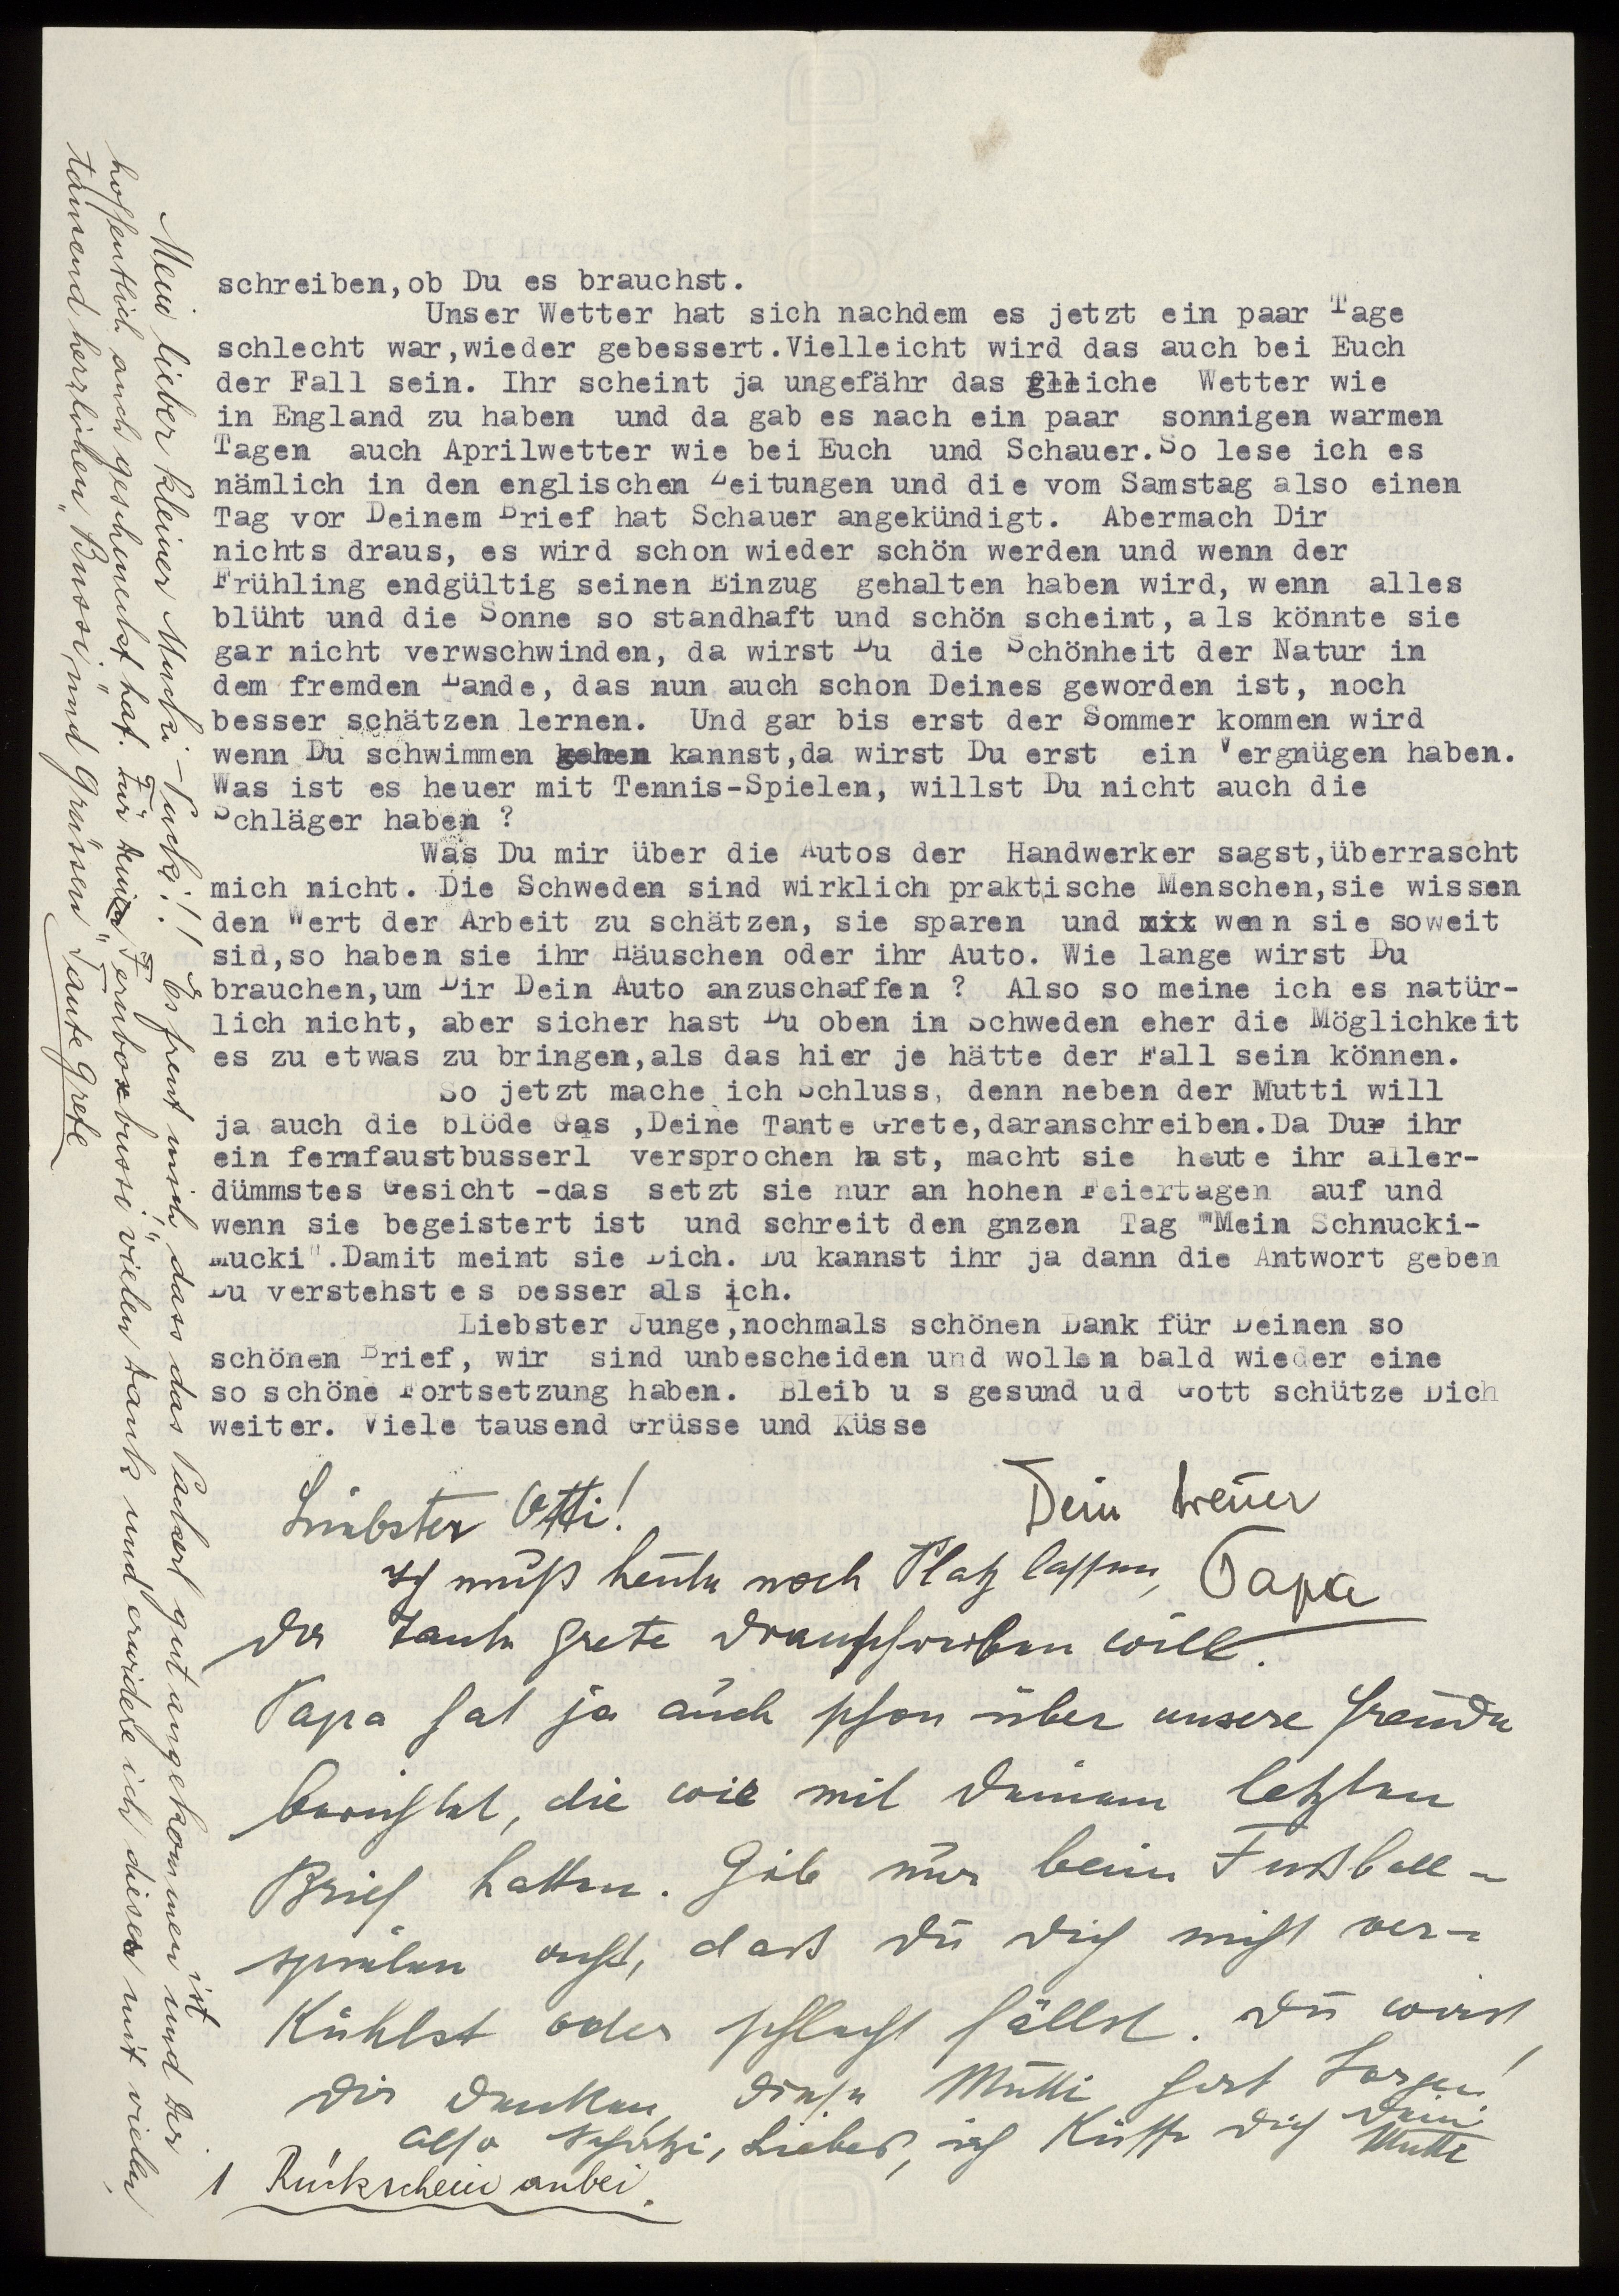 schreiben,ob Du es brauchst.
Unser Wetter hat sich nachdem es jetzt ein paar Tage
schlecht war,wieder gebessert.Vielleicht wird das auch bei Euch
der Fall sein. Ihr scheint ja ungefähr das gleiche Wetter wie
in England zu haben und da gab es nach ein paar sonnigen warmen
Tagen auch Aprilwetter wie bei Euch und Schauer.So lese ich es
nämlich in den englischen Zeitungen und die vom Samstag also einen
Tag vor Deinem Brief hat Schauer angekündigt. Abermach Dir
nichts draus, es wird schon wieder schön werden und wenn der
Frühling endgültig seinen Einzug gehalten haben wird, wenn alles
blüht und die Sonne so standhaft und schön scheint, als könnte sie
gar nicht verwschwinden, da wirst Du die Schönheit der Natur in
dem fremden Lande, das nun auch schon Deines geworden ist, noch
besser schätzen lernen. Und gar bis erst der Sommer kommen wird
wenn Du schwimmen gehen kannst,da wirst Du erst ein Vergnügen haben.
Was ist es heuer mit Tennis-Spielen, willst Du nicht auch die
Schläger haben ?
Was Du mir über die Autos der Handwerker sagst,überrascht
mich nicht. Die Schweden sind wirklich praktische Menschen,sie wissen
den Wert der Arbeit zu schätzen, sie sparen und wenn sie soweit
sid,so haben sie ihr Häuschen oder ihr Auto. Wie lange wirst Du
brauchen,um Dir Dein Auto anzuschaffen ? Also so meine ich es natür-
lich nicht, aber sicher hast Du oben in Schweden eher die Möglichkeit
es zu etwas zu bringen,als das hier je hätte der Fall sein können.
So jetzt mache ich Schluss, denn neben der Mutti will
ja auch die blöde Gas ,Deine Tante Grete,daranschreiben.Da Dur ihr
ein fernfaustbusserl versprochen hast, macht sie heute ihr aller-
dümmstes Gesicht -das setzt sie nur an hohen Feiertagen auf und
wenn sie begeistert ist und schreit den gnzen Tag "Mein Schnucki-
mucki".Damit meint sie Dich. Du kannst ihr ja dann die Antwort geben
Du verstehst es besser als ich.
Liebster Junge,nochmals schönen Dank für Deinen so
schönen Brief, wir sind unbescheiden und wollen bald wieder eine
so schöne Fortsetzung haben. Bleib u s gesund ud Gott schütze Dich
weiter. Viele tausend Grüsse und Küsse
Dein treuer
Papa
Liebster Otti!
Ich muß heute noch Platz lassen,
da Tante Grete dranschreiben will.
Papa hat ja auch schon über unsere Freude
berichtet, die wir mit Deinem letzten
Brief hatten. Gib nur beim Fußball-
spielen acht, daß Du Dich nicht ver-
kühlst oder schlecht fällst. Du wirst
Dir denken, diese Mutti hat Sorgen!
Also Schatzi, Liebes, ich küsse Dich Deine
Mutti
1 Rückschein anbei.
Mein lieber kleiner Mucki-Schucki!! Es freut mich, dass das Packerl gut angekommen ist und Dir
hoffentlich auch geschmeckt hat. Für Deinen "Fernboxbussi" vielen Dank und erwidere ich diesen mit vielen
tausend herzlichen "Bussi" und Grüssen Tante Grete